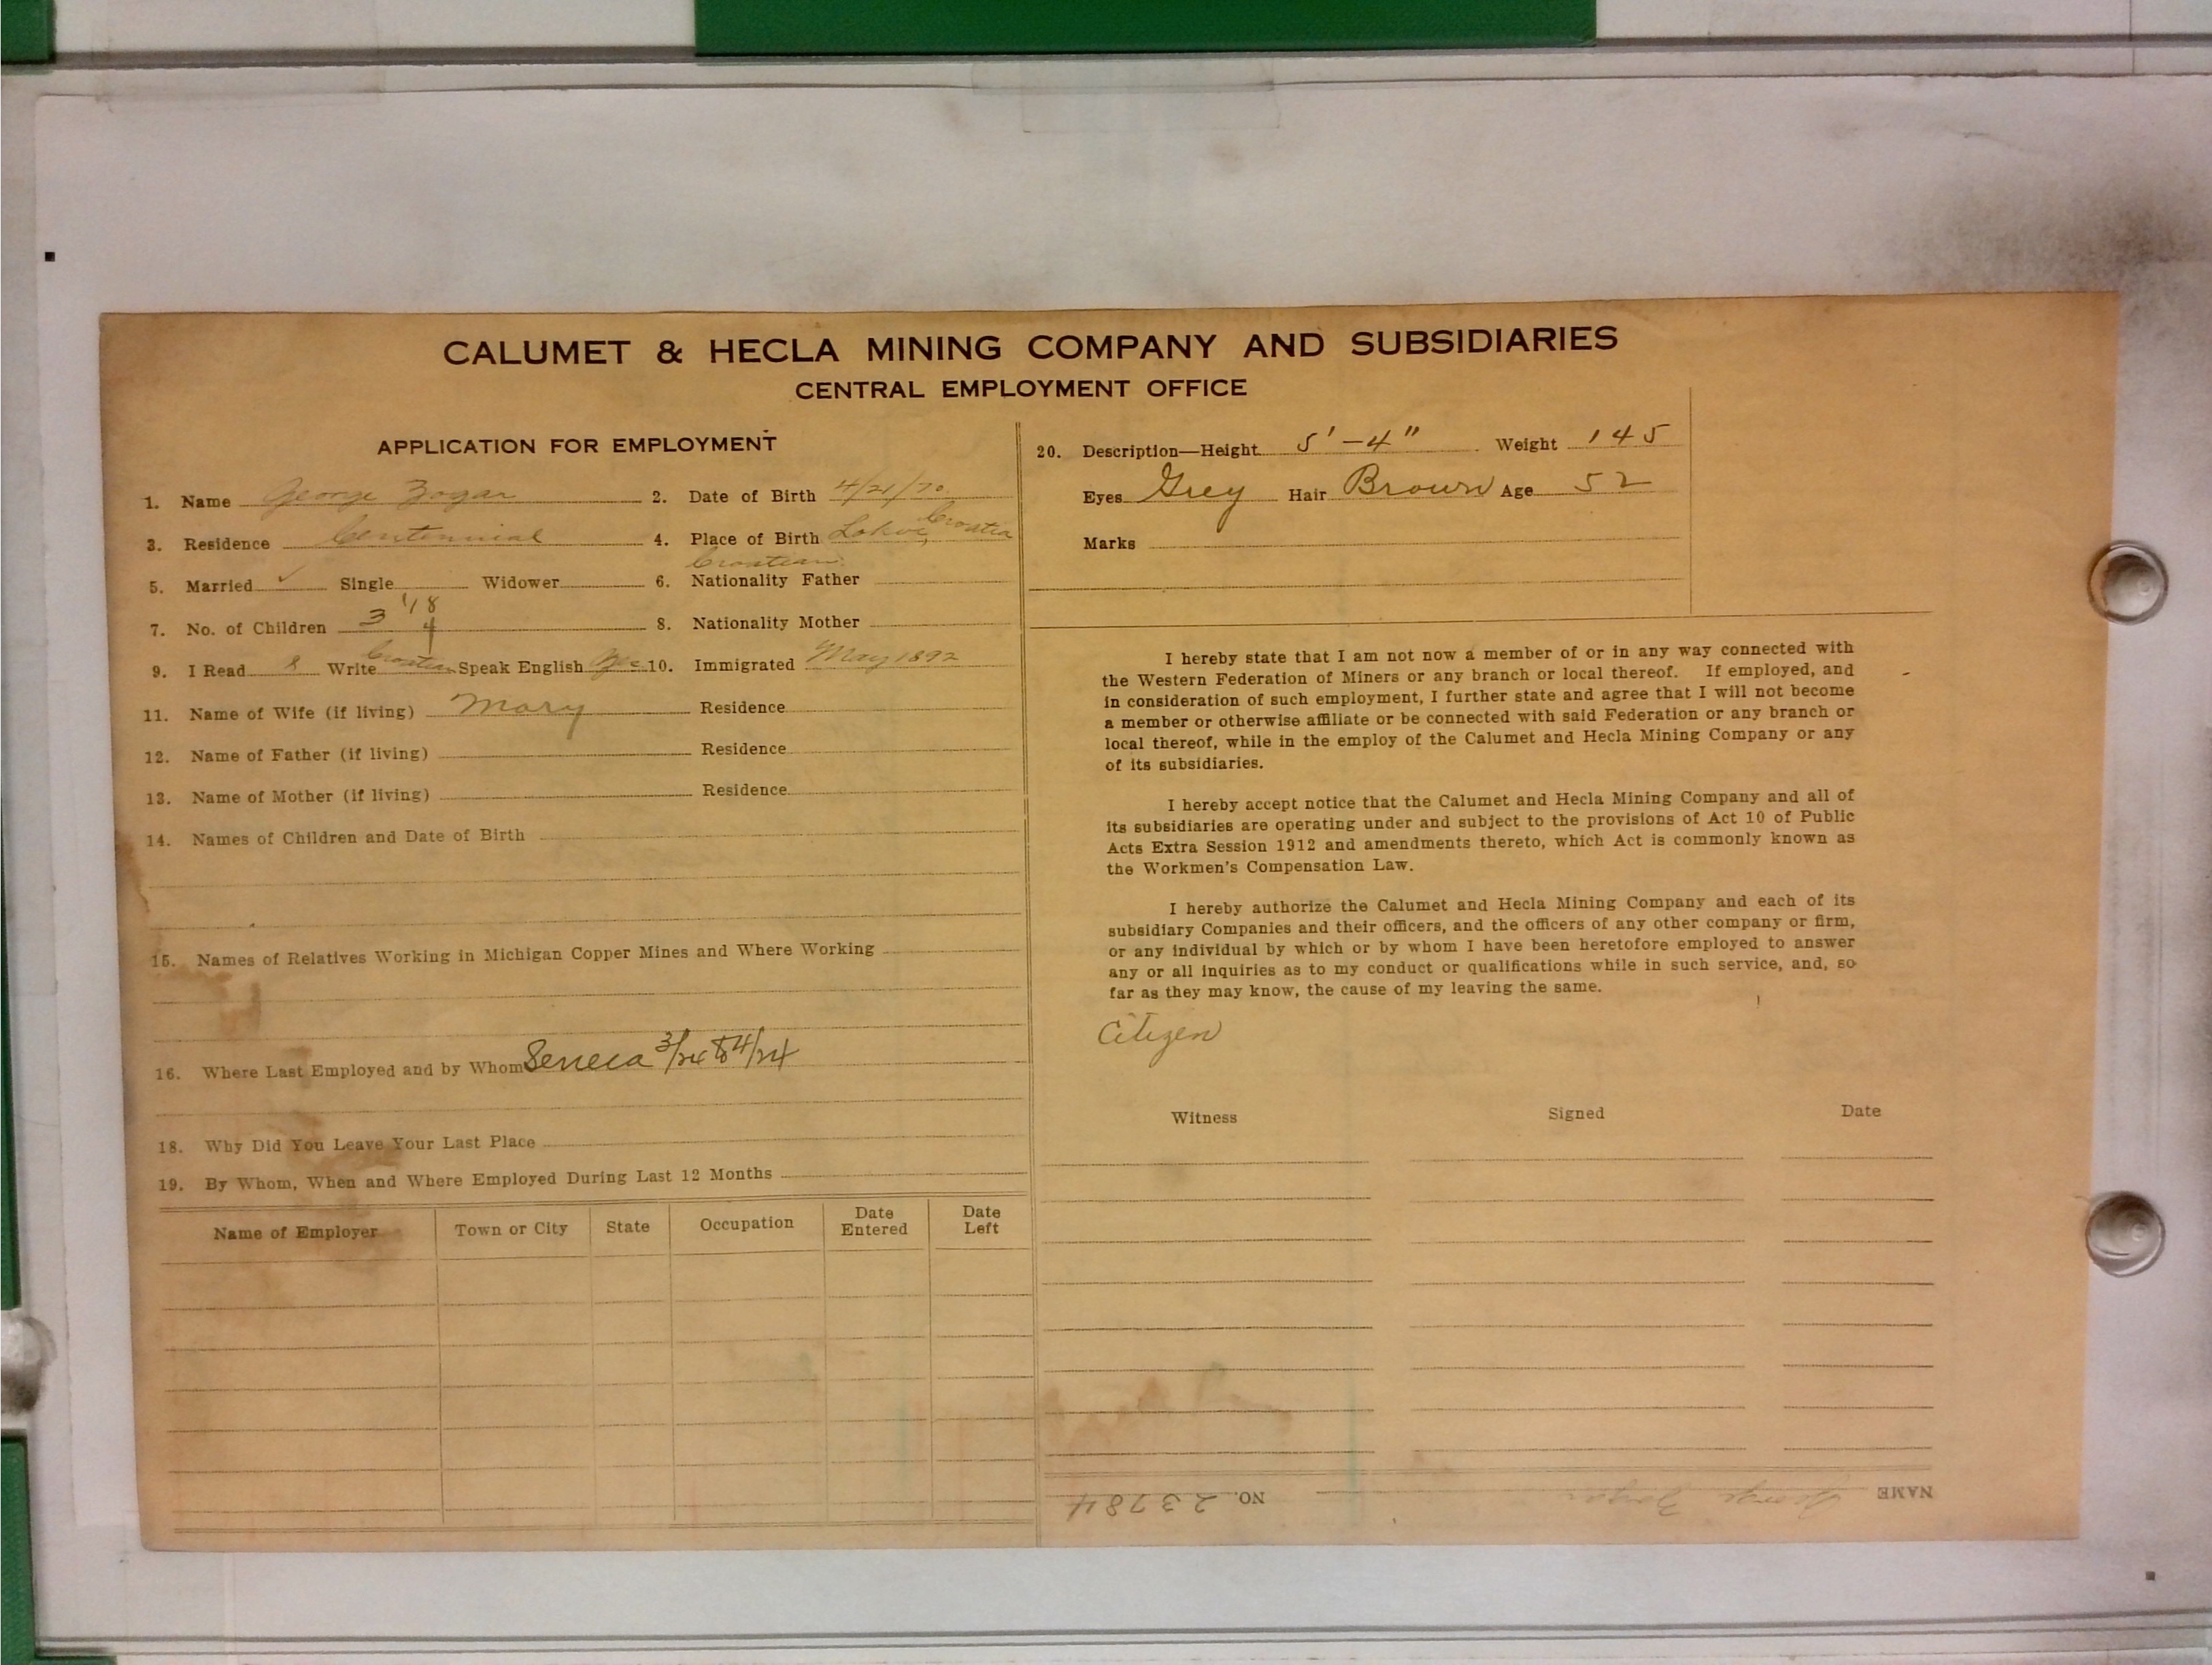 CALUMET & HECLA MINING COMPANY AND SUBSIDIARIES
CENTRAL EMPLOYMENT OFFICE
APPLICATION FOR EMPLOYMENT
1. Name George Zogar 2. Date of Birth 4/21/70
3. Residence Centennial 4. Place of Birth Lokve, Croatia
Croatian
5. Married ✓ Single Widower 6. Nationality Father
7. No. of Children 3 1/8 4 8. Nationality Mother
9. I Read & Write Croatian Speak English Yes 10. Immigrated May 1892
11. Name of Wife (if living) Mary Residence
12. Name of Father (if living) Residence
13. Name of Mother (if living) Residence
14. Names of Children and Date of Birth
15. Names of Relatives Working in Michigan Copper Mines and Where Working
16. Where Last Employed and by Whom Seneca 3/24 to 4/24
18. Why Did You Leave Your Last Place
19. By Whom, When and Where Employed During Last 12 Months
Name of Employer Town or City State Occupation Date Entered Date Left
20. Description—Height 5'-4" Weight 145
Eyes Grey Hair Brown Age 52
Marks
I hereby state that I am not now a member of or in any way connected with
the Western Federation of Miners or any branch or local thereof. If employed, and
in consideration of such employment, I further state and agree that I will not become
a member or otherwise affiliate or be connected with said Federation or any branch or
local thereof, while in the employ of the Calumet and Hecla Mining Company or any
of its subsidiaries.
I hereby accept notice that the Calumet and Hecla Mining Company and all of
its subsidiaries are operating under and subject to the provisions of Act 10 of Public
Acts Extra Session 1912 and amendments thereto, which Act is commonly known as
the Workmen's Compensation Law.
I hereby authorize the Calumet and Hecla Mining Company and each of its
subsidiary Companies and their officers, and the officers of any other company or firm,
or any individual by which or by whom I have been heretofore employed to answer
any or all inquiries as to my conduct or qualifications while in such service, and, so
far as they may know, the cause of my leaving the same.
Citizen
Witness Signed Date
NAME George Zogar NO. 23784